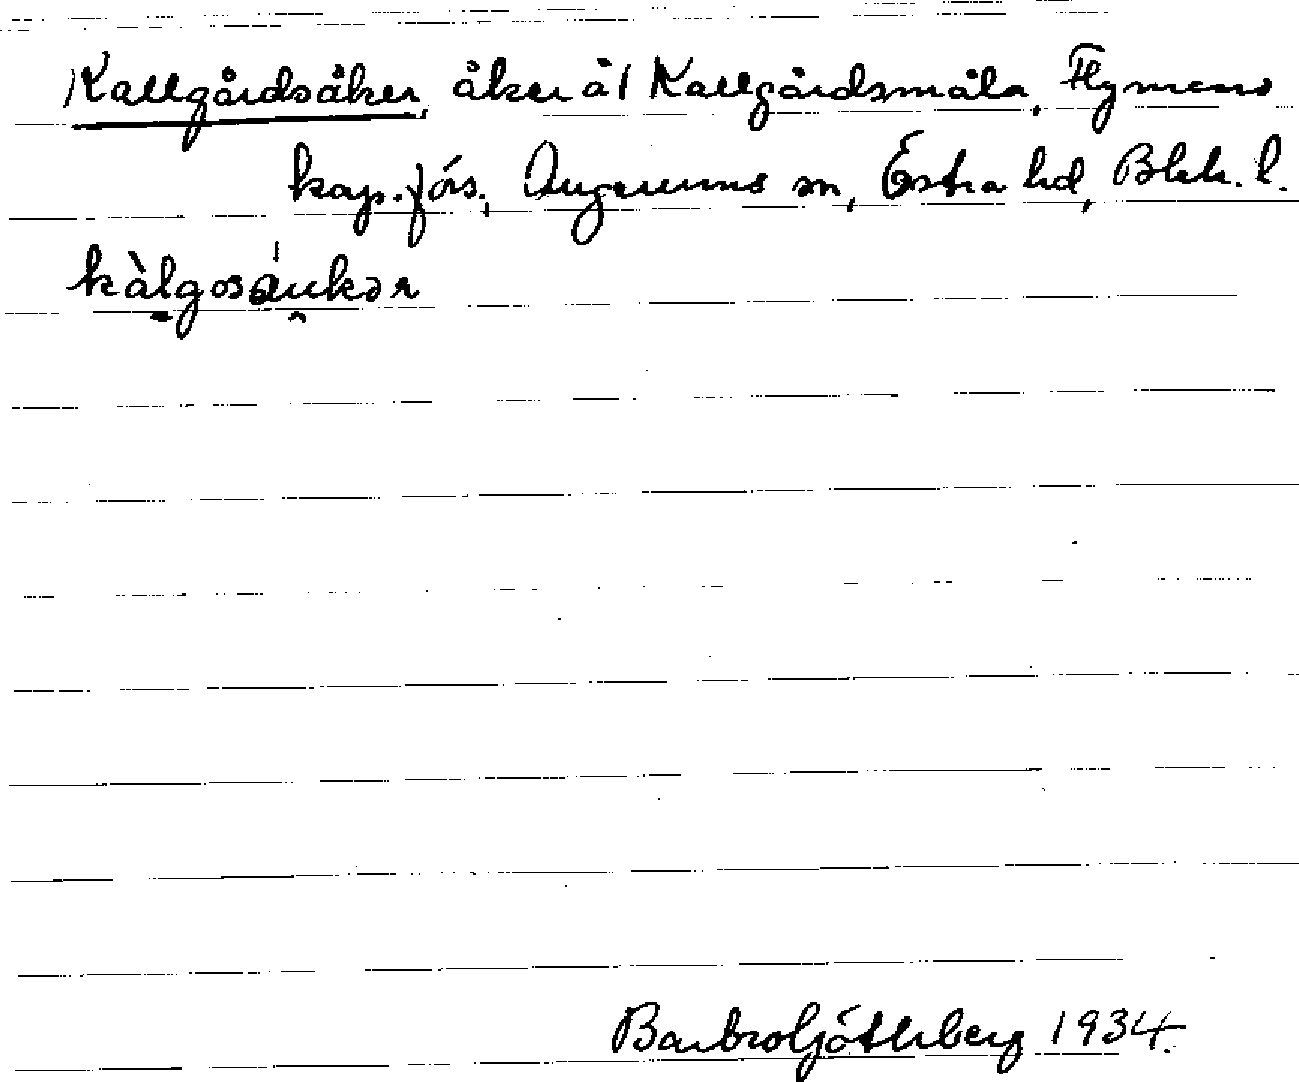 Kallgårdsåker, åker å 1 Kallgårdsmåla, Flymens
kap.förs., Augerums sn, Östra hd, Blek. l.
kàlgosáukər
Barbro Götherberg 1934.